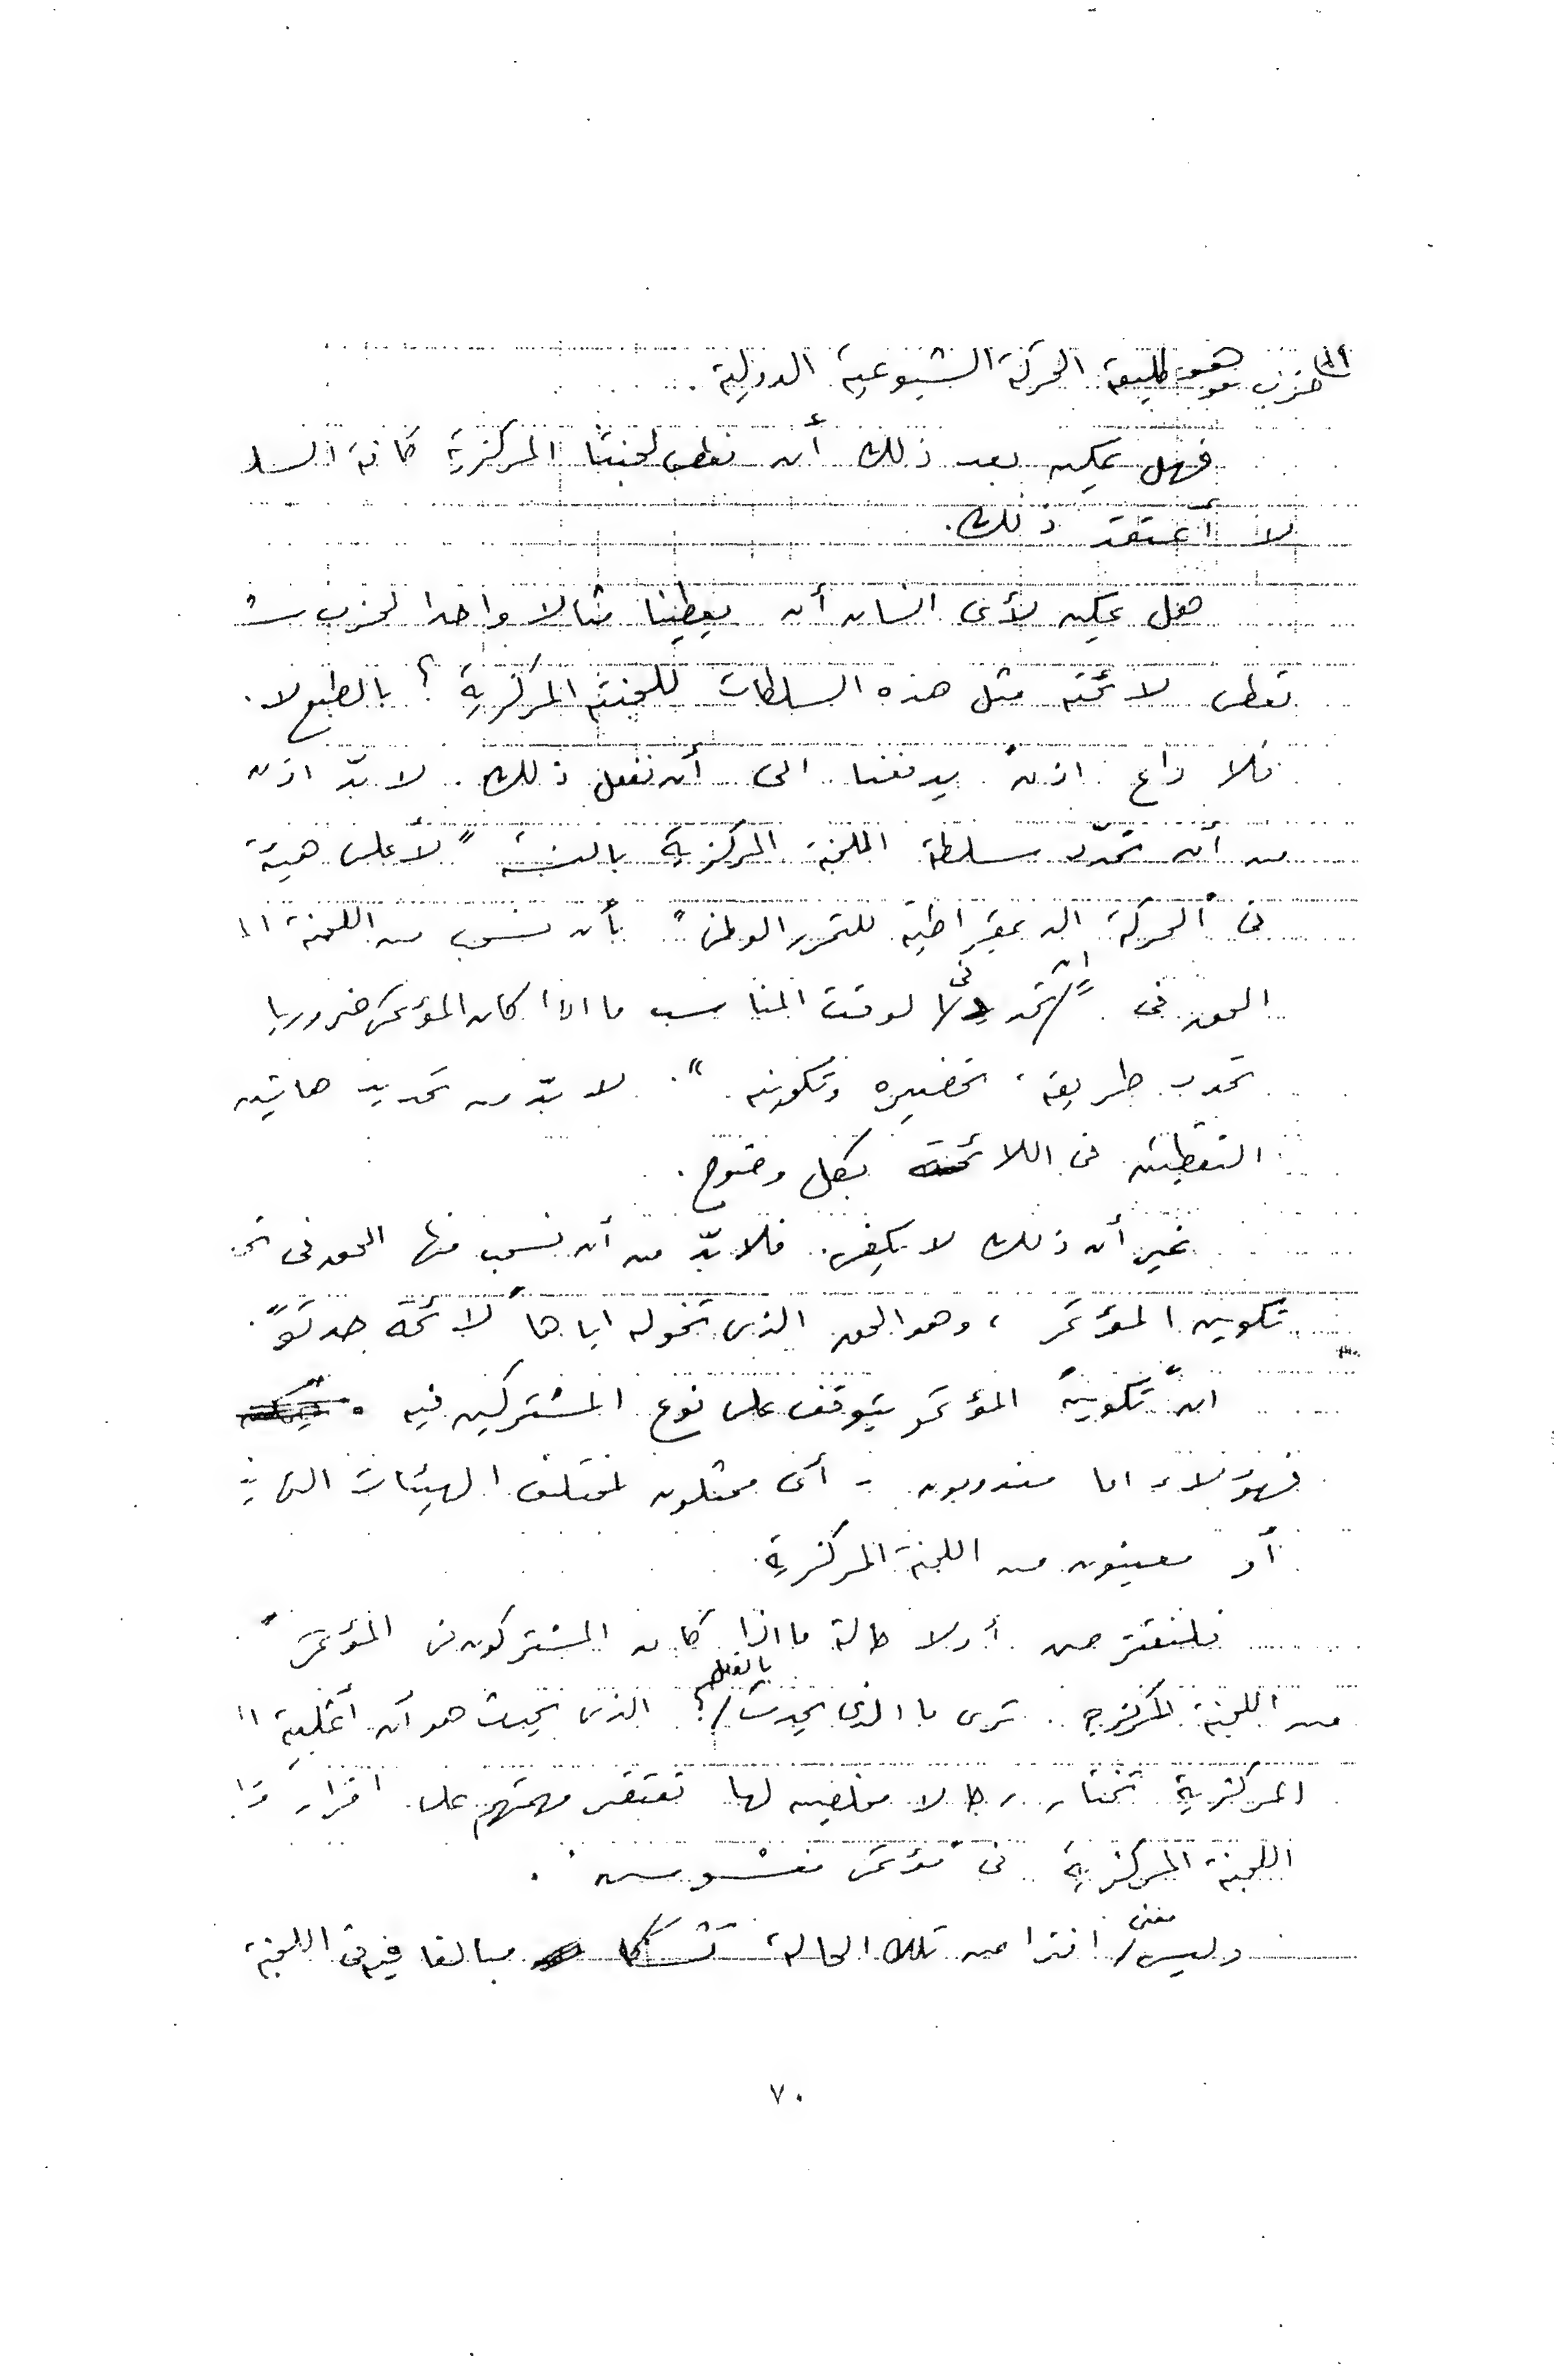 الى حزب هو طليعة الحركة الشيوعية الدولية.
فهل يمكن بعد ذلك أن نعطى لجنتنا المركزية كافة السلـ
لا أعتقد ذلك.
هل يمكن لأى انسان أن يعطينا مثالا واحدا لحزب شـ
تعطى لائحته مثل هذه السلطات للجنته المركزية؟ بالطبع لا.
فلا داع اذن يدفعنا الى أن نفعل ذلك. لا بدّ اذن
من أن تحدّد سلطة اللجنة المركزية بالنسبة "لأعلى هيئة
فى "الحركة الديمقراطية للتحرر الوطنى" بأن نسحب من اللجنة ا
الحق فى "أن تحدد فى الوقت المناسب ما اذا كان المؤتمر ضروريا
تحدد طريقة تحضيره وتكوينه". لا بدّ من تحديد هاتين
النقطتين فى اللائحة بكل وضوح.
غير أن ذلك لا يكفى. فلا بدّ من أن نسحب منها الحق فى تحـ
تكوين المؤتمر، وهو الحق الذى تخوله اياها "لائحة حدتو".
ان "تكوين" المؤتمر يتوقف على نوع المشتركين فيه.
فهؤلاء اما مندوبون - أى ممثلون لمختلف الهيئات التى
أو معينون من اللجنة المركزية.
فلنفترض أولا حالة ما اذا كان المشتركون فى المؤتمر
من اللجنة المركزية. ترى ما الذى يحدث بالفعل؟ الذى يحدث هو أن أغلبية ا
المركزية تختار رجالا مخلصين لها تقتصر مهمتهم على اقرار
اللجنة المركزية فى "مؤتمر مغشوش".
وليس معنى افتراض تلك الحالة تشككا مبالغا فيه فى اللجنة
٧٠